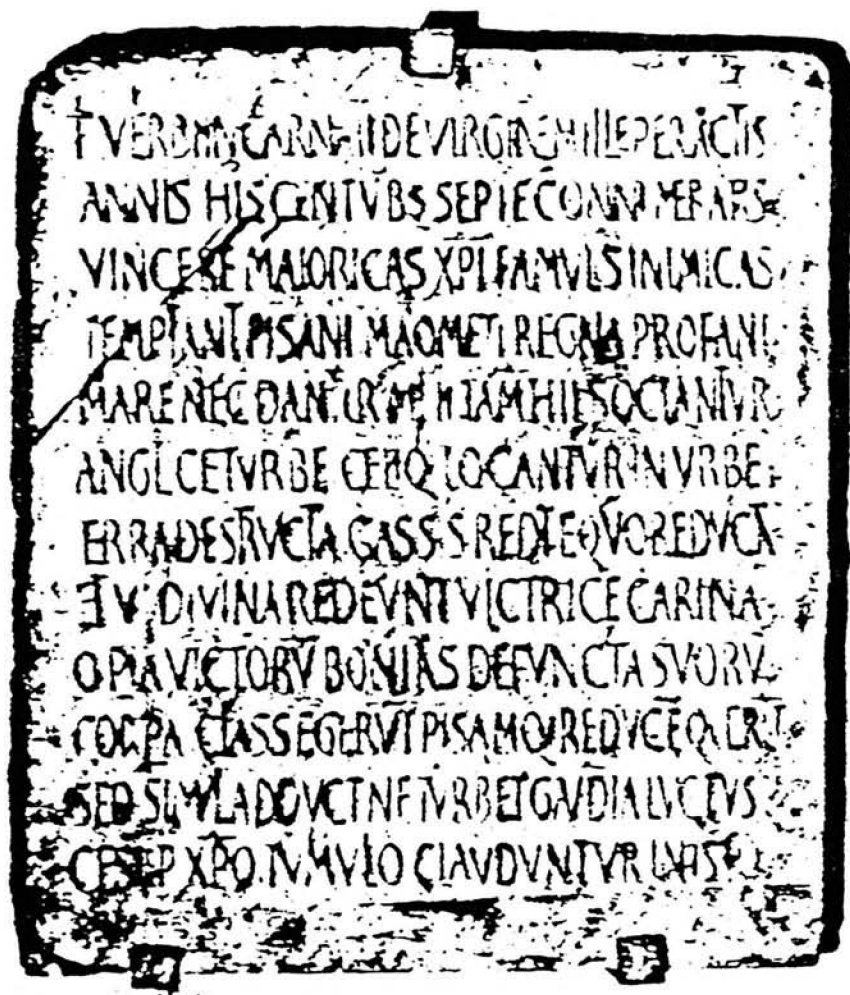 † VERBI INCARNATI DE VIRGINE MILLE PERACTIS
ANNIS HIS CENTVBS SEPTE CONNVMERATIS
VINCERE MAIORICAS XPI FAMVLIS INIMICAS
TEMPTANT PISANI MAOMETI REGNA PROFANI
MARE NEC DANTUR IAM HII SOCIANTVR
ANGLCE TVRBE CELIQ LOCANTVR IN VRBE
ERRA DESTRVCTA CLASSIS REDIT EQVORE DVCTA
DIVINA REDEVNT VICTRICE CARINA
O PIA VICTORV BONITAS DEFVNCTA SVORV
CORPA CLASSE GERVT PISAMQ REDVCE QERT
SED SIMVL ADDVCT NE TVRBET GAVDIA LVCTVS
CESI P XPO TVMVLO CLAVDVNTVR IN ISTO